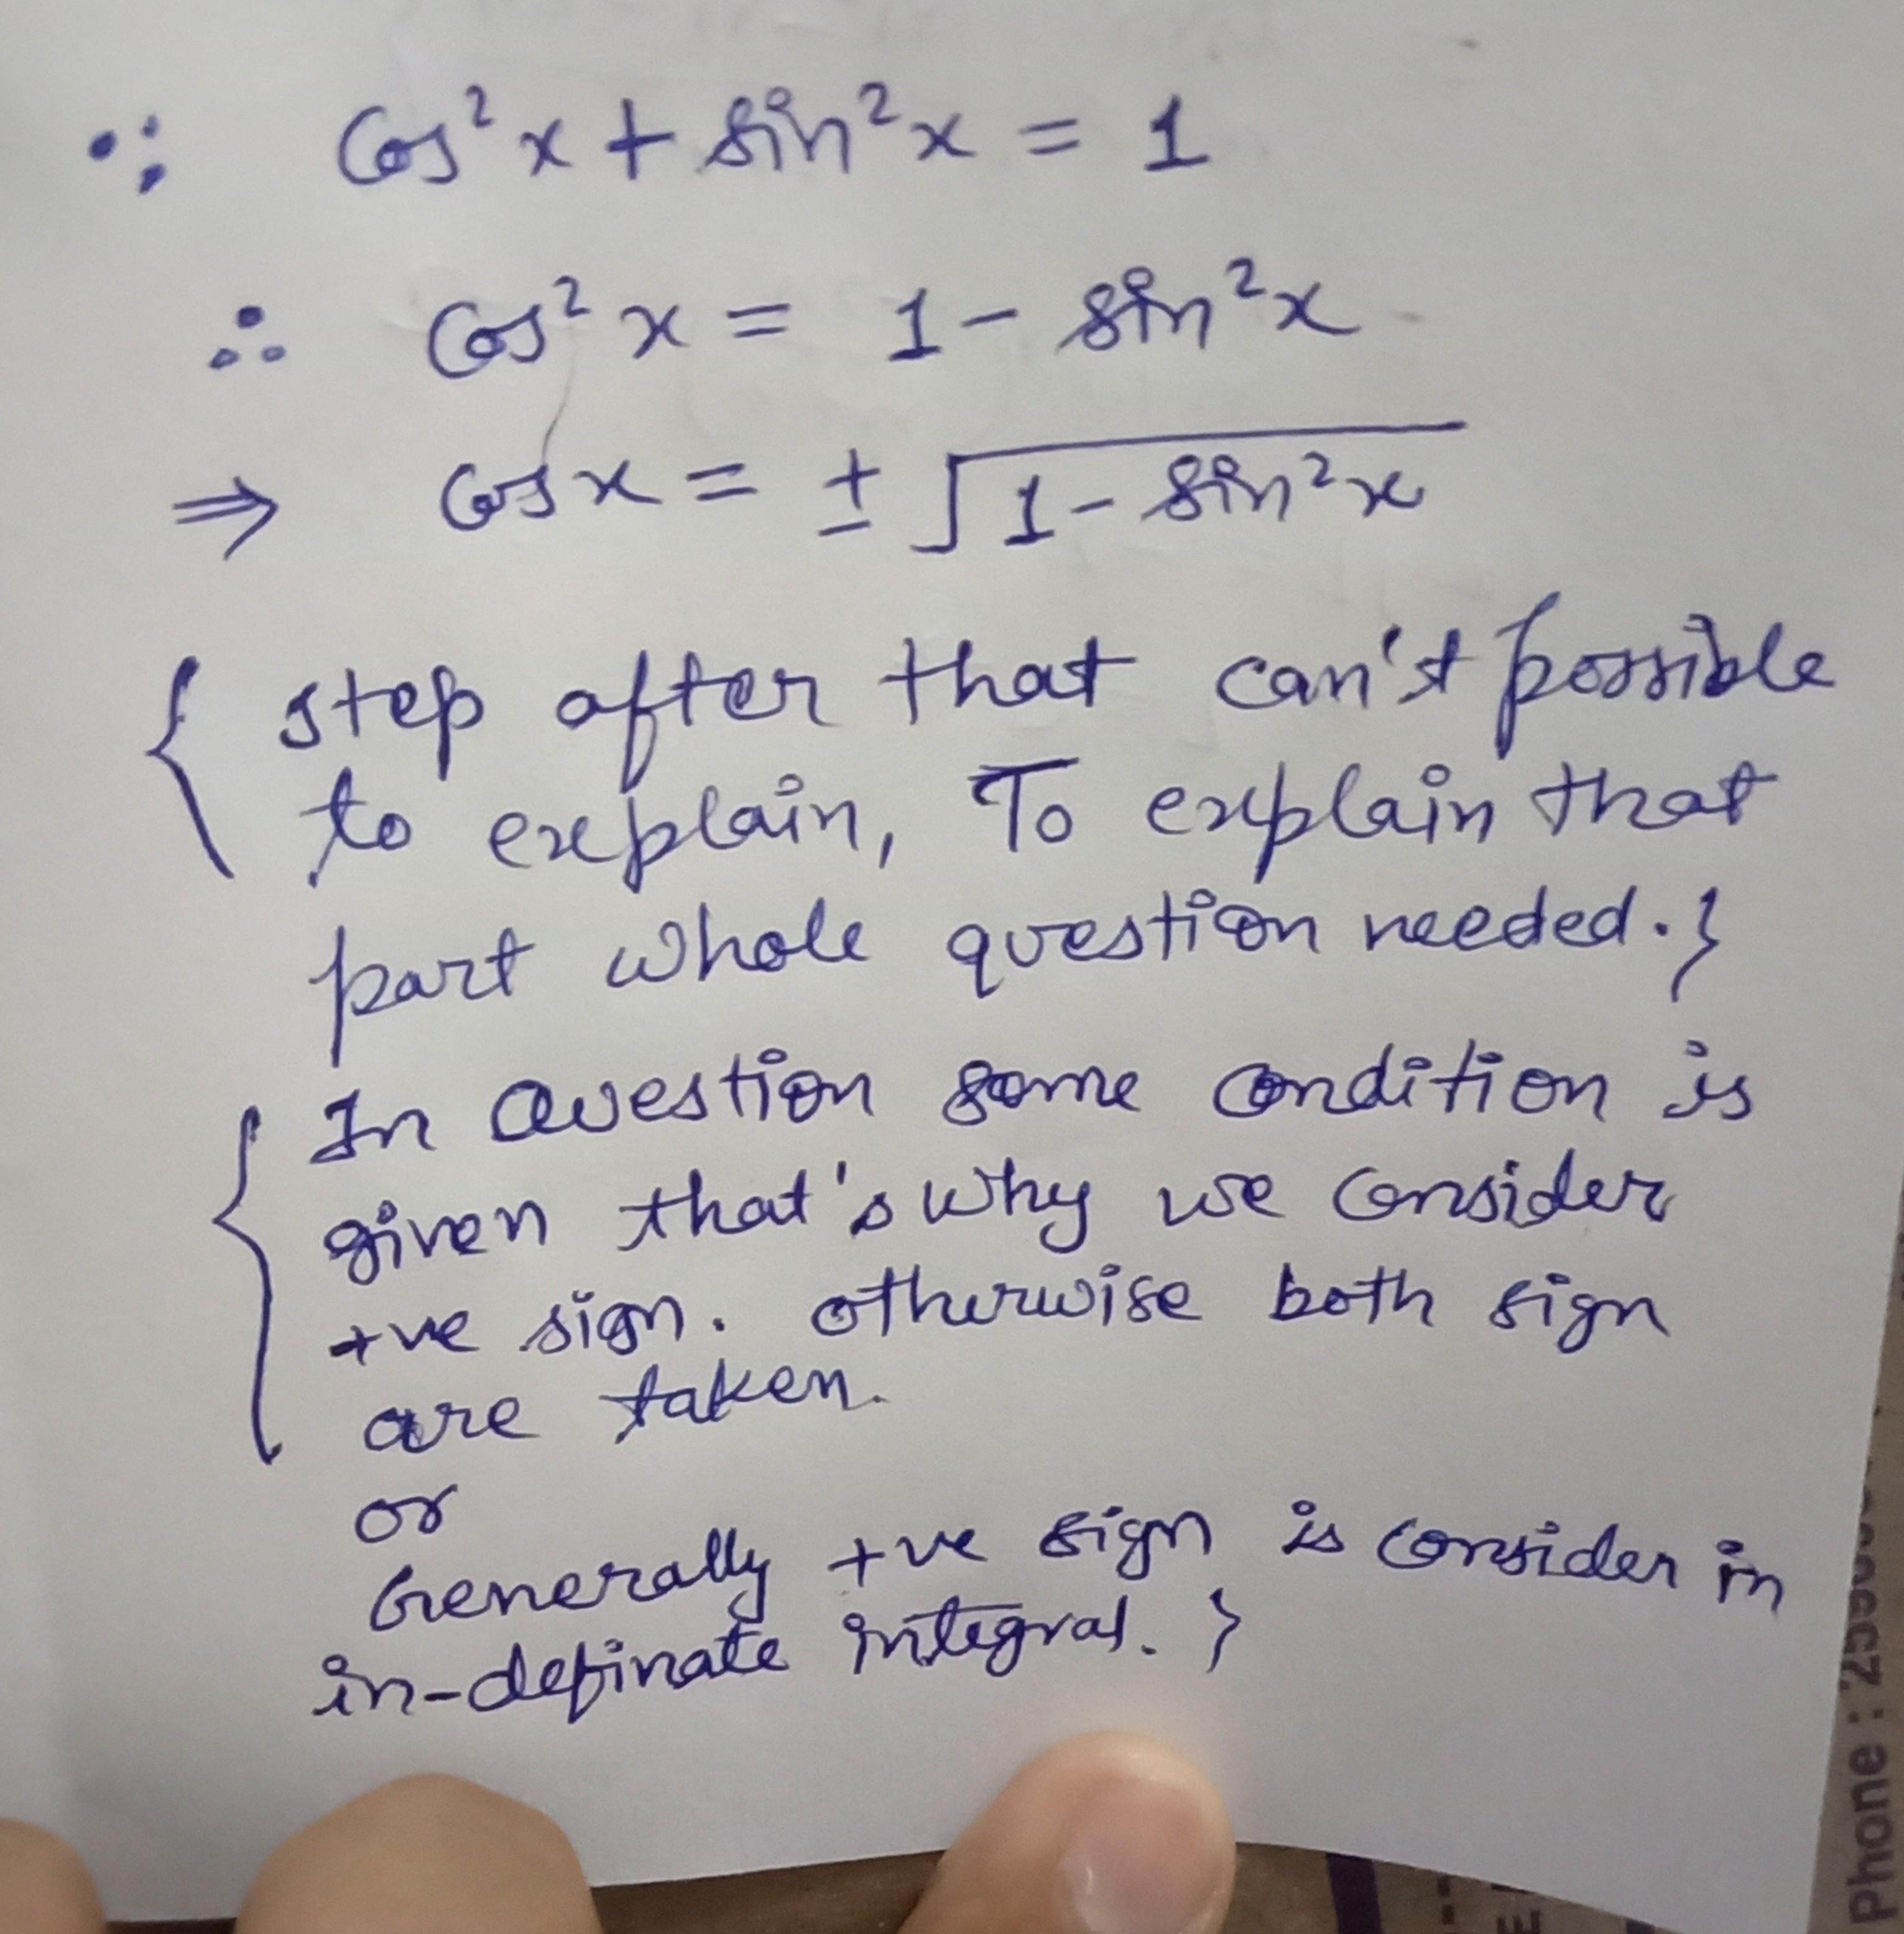 ∵ Cos²x + sin²x = 1
∴ Cos²x = 1 - sin²x
⇒ Cosx = ± √(1 - sin²x)
{ step after that can't possible
to explain, To explain that
part whole question needed.}
{ In Question some condition is
given that's why we consider
+ve sign. otherwise both sign
are taken.
or
Generally +ve sign is consider in
in-definate integral. }
Phone :